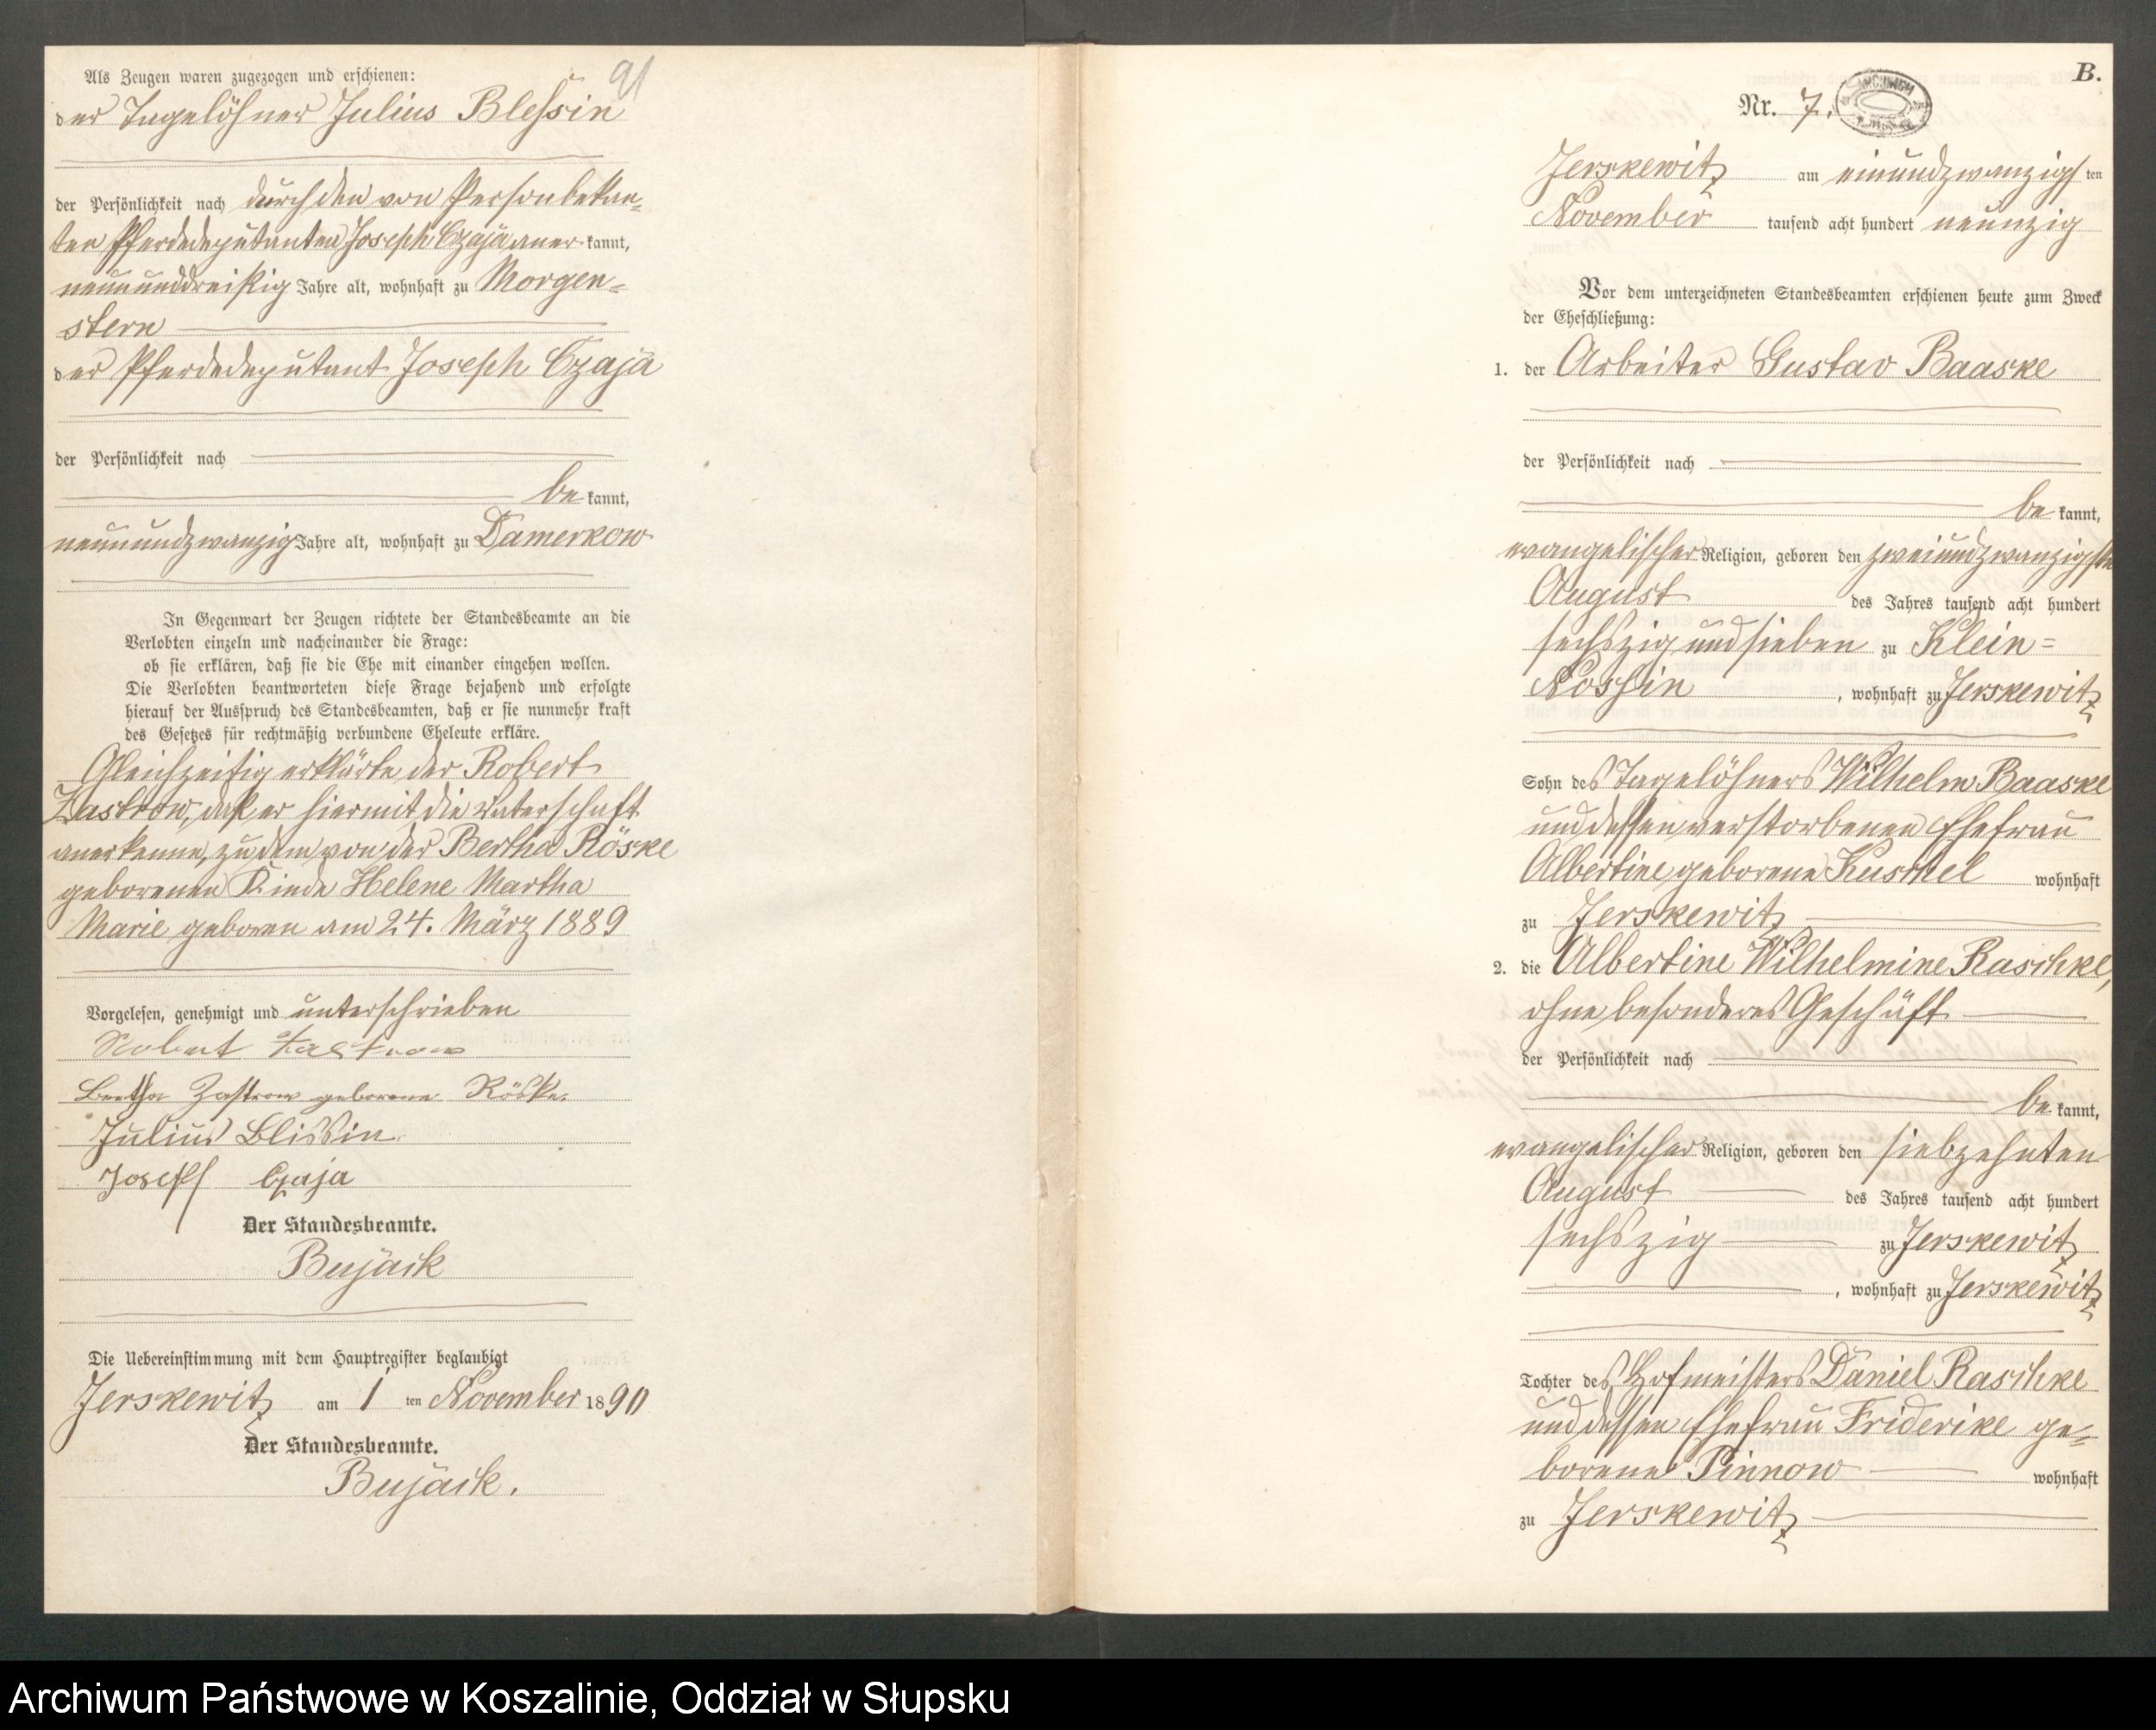 Als Zeugen waren zugezogen und erschienen:
91
der Tagelöhner Julius Blessin
der Persönlichkeit nach durch den von Person bekan=
ten Pferdedeputanten Joseph Czaja anerkannt,
neununddreißig Jahre alt, wohnhaft zu Morgen=
stern
der Pferdedeputant Joseph Czaja
der Persönlichkeit nach
bekannt,
neunundzwanzig Jahre alt, wohnhaft zu Damerkow
In Gegenwart der Zeugen richtete der Standesbeamte an die
Verlobten einzeln und nacheinander die Frage:
ob sie erklären, daß sie die Ehe mit einander eingehen wollen.
Die Verlobten beantworteten diese Frage bejahend und erfolgte
hierauf der Ausspruch des Standesbeamten, daß er sie nunmehr kraft
des Gesetzes für rechtmäßig verbundene Eheleute erkläre.
Gleichzeitig erklärte der Robert
Zastrow, daß er hiermit die Vaterschaft
anerkenne, zu dem von der Bertha Röske
geborenen Kinde Helene Martha
Marie geboren am 24. März 1889
Vorgelesen, genehmigt und unterschrieben
Robert Zastrow
Bertha Zastrow geborene Röske.
Julius Blissin.
Joseph Czaja
Der Standesbeamte.
Bujack
Die Uebereinstimmung mit dem Hauptregister beglaubigt
Jerskewitz am 1 ten November 1890
Der Standesbeamte.
Bujack.
B.
Nr. 7.
Jerskewitz am einundzwanzigsten
November tausend acht hundert neunzig
Vor dem unterzeichneten Standesbeamten erschienen heute zum Zweck
der Eheschließung:
1. der Arbeiter Gustav Baaske
der Persönlichkeit nach
bekannt,
evangelischer Religion, geboren den zweiundzwanzigsten
August des Jahres tausend acht hundert
sechszig und sieben zu Klein=
Nossin, wohnhaft zu Jerskewitz
Sohn des Tagelöhners Wilhelm Baaske
und dessen verstorbenen Ehefrau
Albertine geborene Kuschel wohnhaft
zu Jerskewitz
2. die Albertine Wilhelmine Raschke,
ohne besonderes Geschäft
der Persönlichkeit nach
bekannt,
evangelischer Religion, geboren den siebzehnten
August des Jahres tausend acht hundert
sechszig zu Jerskewitz
, wohnhaft zu Jerskewitz
Tochter des Hofmeisters Daniel Raschke
und dessen Ehefrau Friderike ge=
borene Pinnow wohnhaft
zu Jerskewitz
Archiwum Państwowe w Koszalinie, Oddział w Słupsku